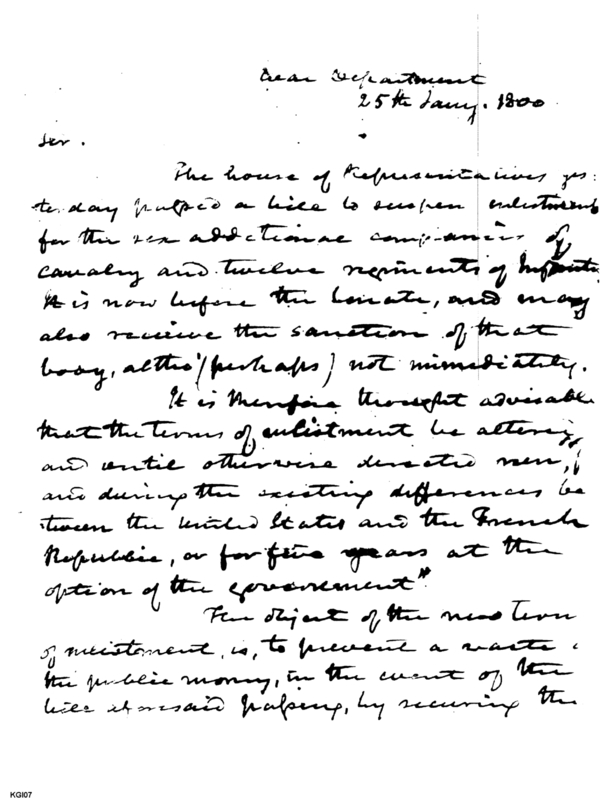 War Department
25th Jany. 1800
Sir.
The house of Representatives yes:
terday passed a bill to suspen enlistments
for the six additional companies of
cavalry and twelve regiments of Infantr
It is now before the Senate, and may
also receive the sanction of that
body, altho' (perhaps) not immediately.
It is therefore thought advisable
that the terms of enlistment be altered,
and until otherwise directed
and during the existing differences be
tween the United States and the French
Republic, or for five years at the
option of the government"
The object of the new term
of enlistment, is, to prevent a waste
the public money, in the event of the
bill aforesaid passing, by securing the
KGI07